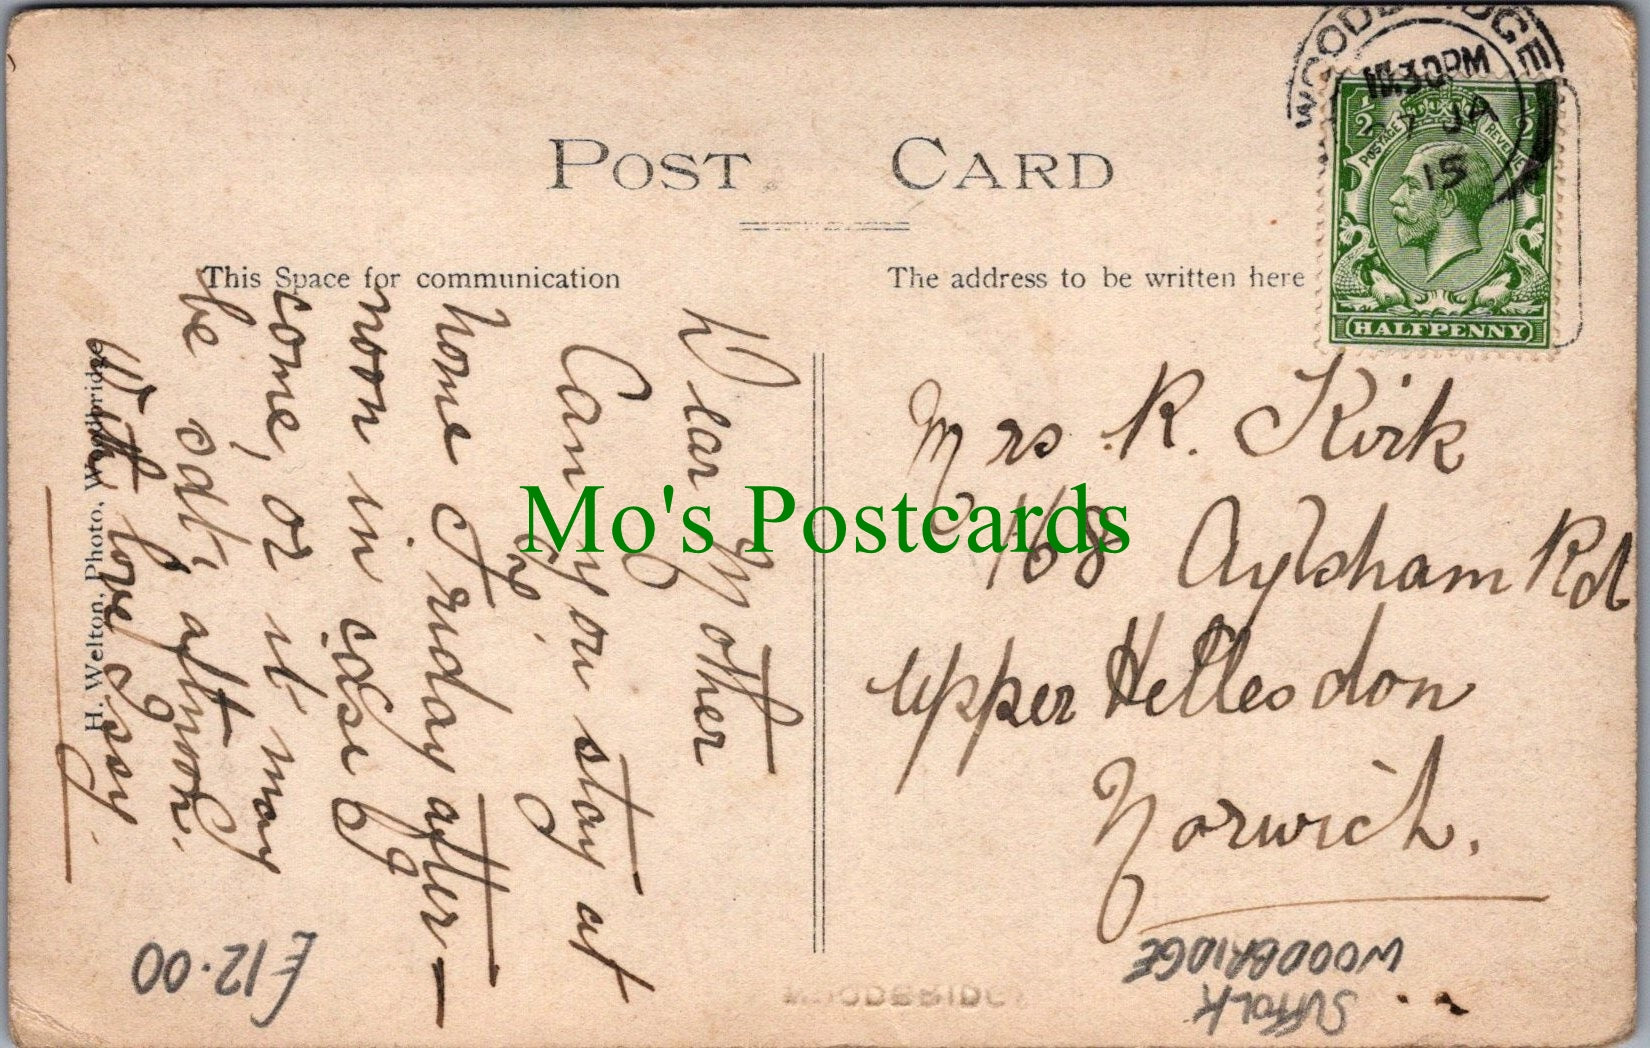 WOODBRIDGE
11.30PM
JY
15
POSTAGE REVENUE
1/2 1/2
HALFPENNY
POST CARD
This Space for communication
The address to be written here
Dear Mother
Can you stay at
home Friday after-
noon in case I
come, or it may
be sat. afternoon.
With love Issy.
Mrs R. Kirk
168 Aylsham Rd
Upper Hellesdon
Norwich.
H. Welton, Photo, Woodbridge
Mo's Postcards
£12.00
SUFFOLK
WOODBRIDGE
WOODBRIDGE